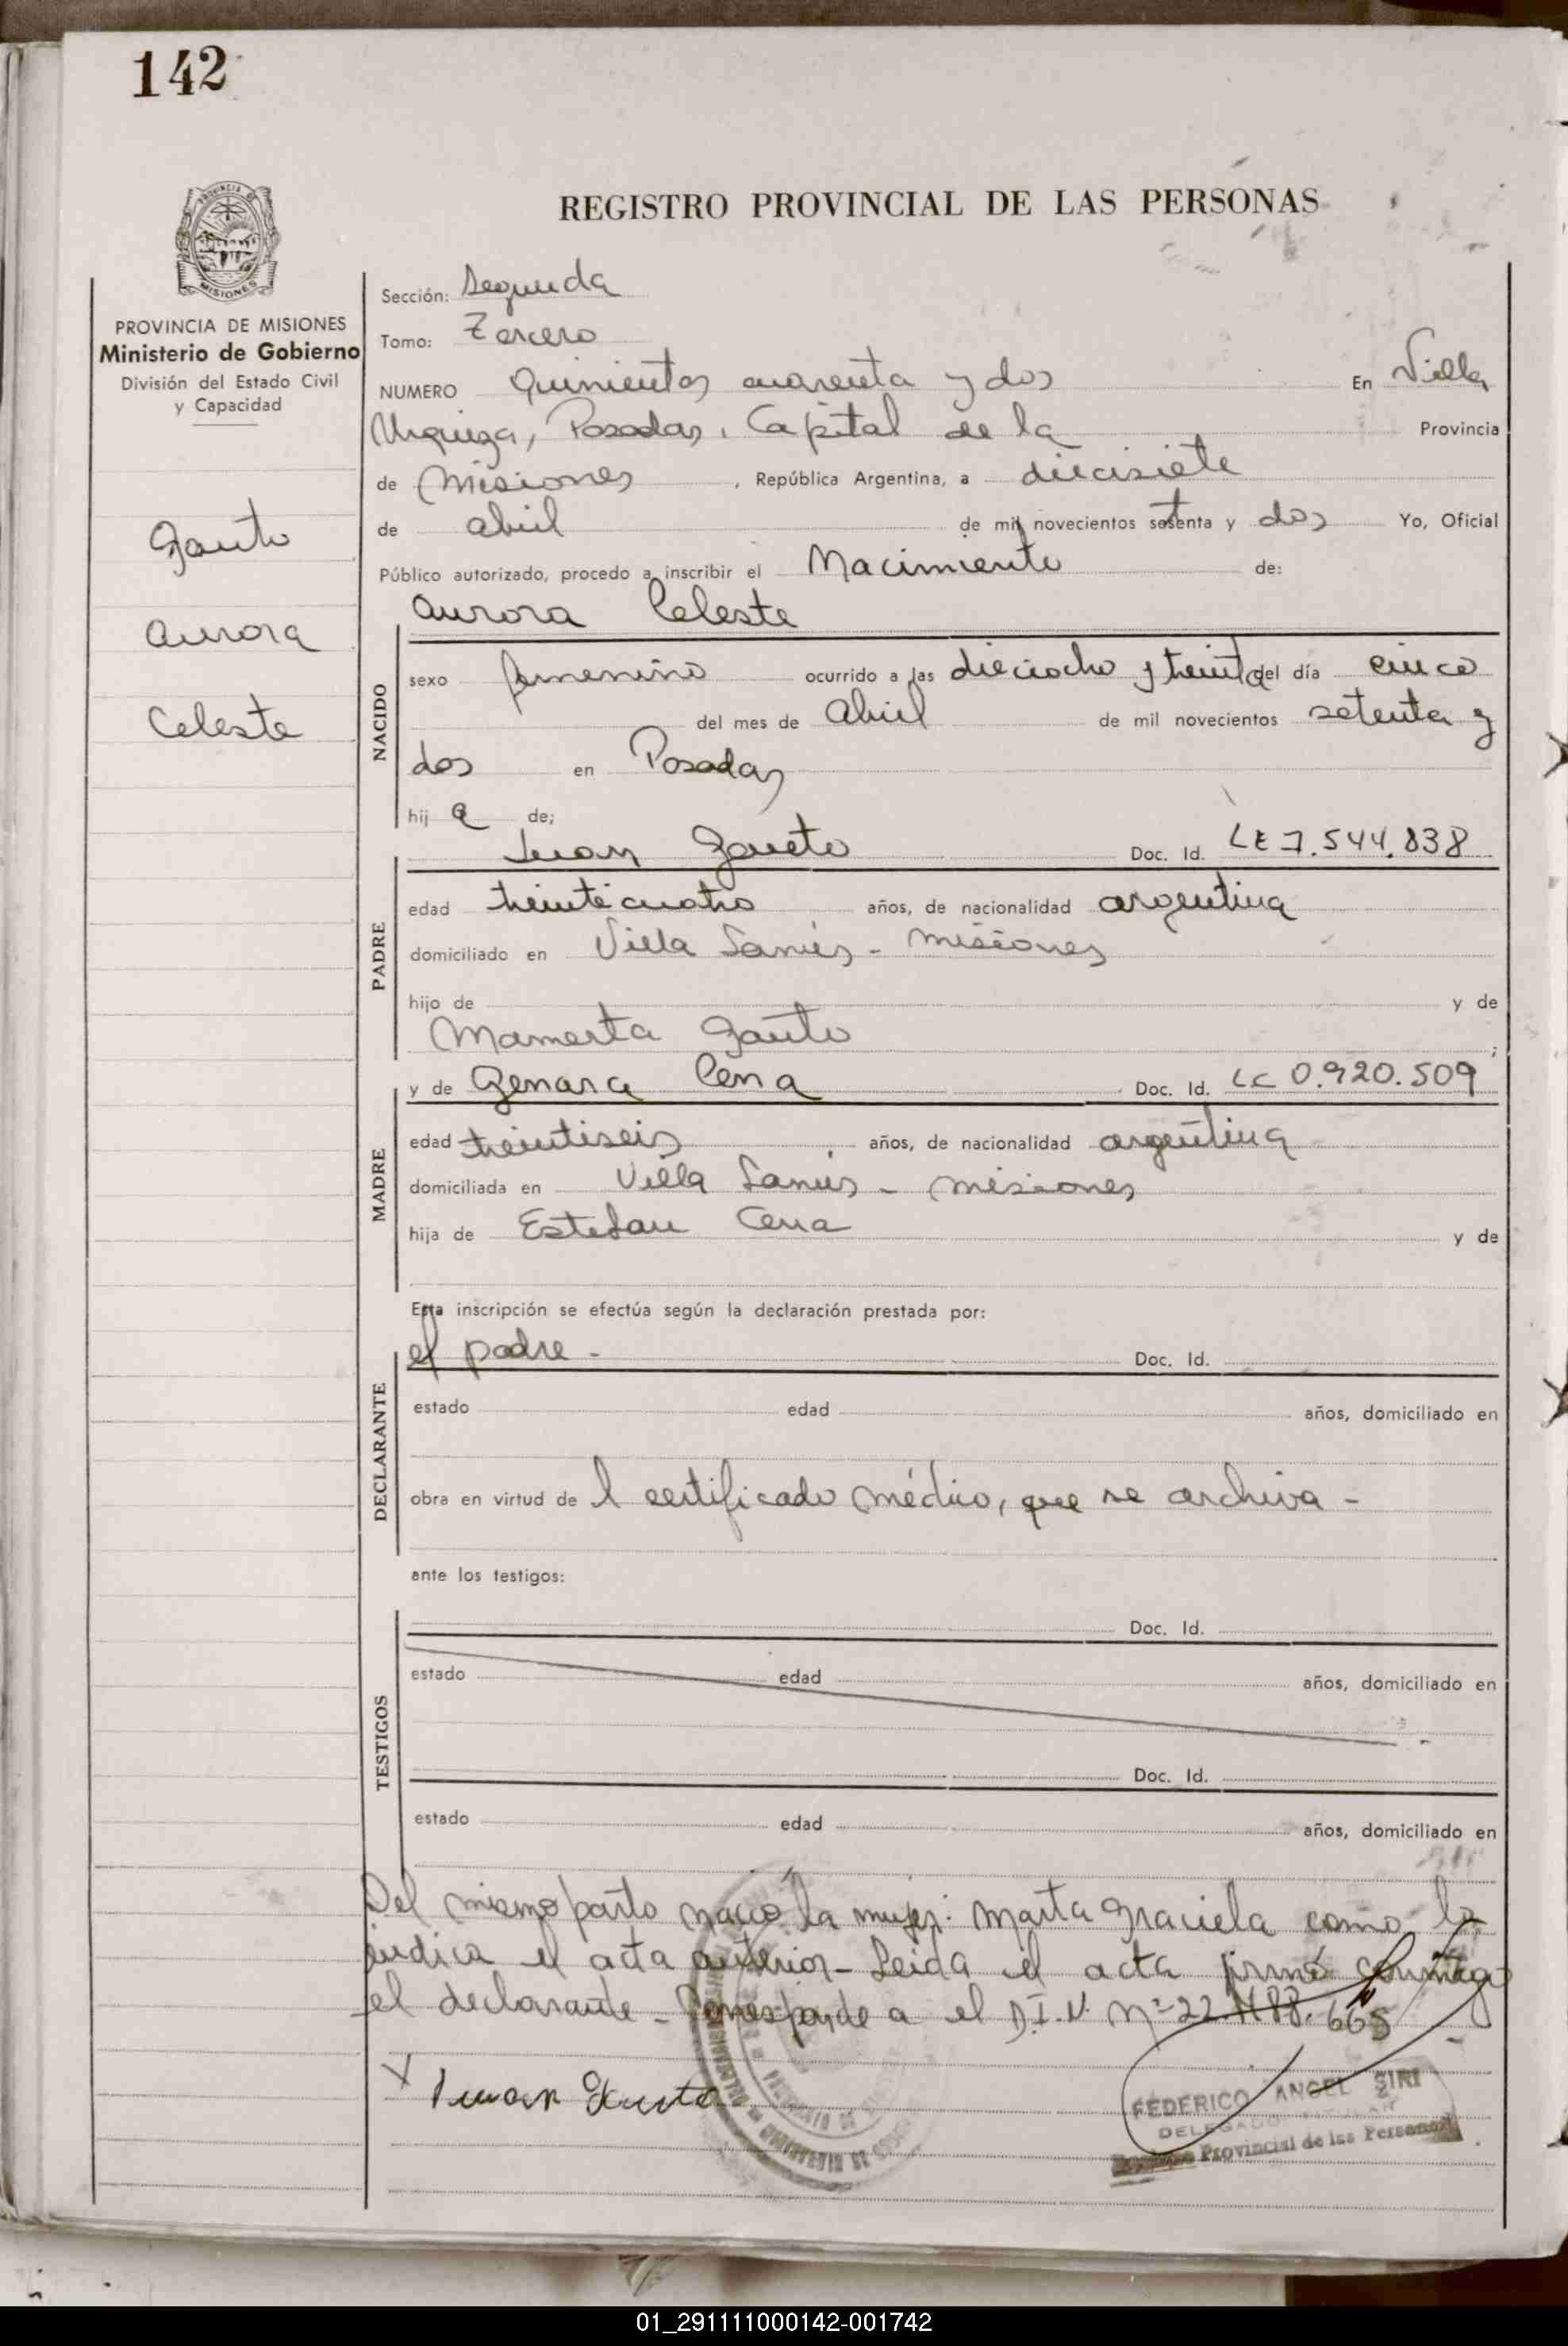 142
REGISTRO PROVINCIAL DE LAS PERSONAS
MISIONES
PROVINCIA DE MISIONES
Ministerio de Gobierno
División del Estado Civil
y Capacidad
Gauto
Aurora
Celeste
Sección: Segunda
Tomo: Tercero
NUMERO Quinientos cuarenta y dos En Villa
Urquiza, Posadas, Capital de la Provincia
de Misiones, República Argentina, a diecisiete
de abril de mil novecientos setenta y dos Yo, Oficial
Público autorizado, procedo a inscribir el Nacimiento de:
Aurora Celeste
NACIDO
sexo femenino ocurrido a las dieciocho y treinta del día cinco
del mes de Abril de mil novecientos setenta y
dos en Posadas
hij a de;
Juan Gauto Doc. Id. LE 7.544.838
PADRE
edad treinticuatro años, de nacionalidad argentina
domiciliado en Villa Lanús - Misiones
hijo de y de
Mamerta Gauto ;
y de Genara Cena Doc. Id. LC 0.920.509
MADRE
edad treintiseis años, de nacionalidad argentina
domiciliada en Villa Lanús - Misiones
hija de Esteban Cena y de
Esta inscripción se efectúa según la declaración prestada por:
el padre - Doc. Id.
DECLARANTE
estado edad años, domiciliado en
obra en virtud de l certificado médico, que se archiva -
ante los testigos:
Doc. Id.
TESTIGOS
estado edad años, domiciliado en
Doc. Id.
estado edad años, domiciliado en
Del mismo parto nació la mujer: Marta Graciela como lo
indica el acta anterior - Leida el acta firmó conmigo
el declarante - Corresponde a el D.I.N. Nº 22 665
X Juan Gauto
FEDERICO ANGEL SIRI
DELEGADO TITULAR
Provincial de las Personas
01_291111000142-001742